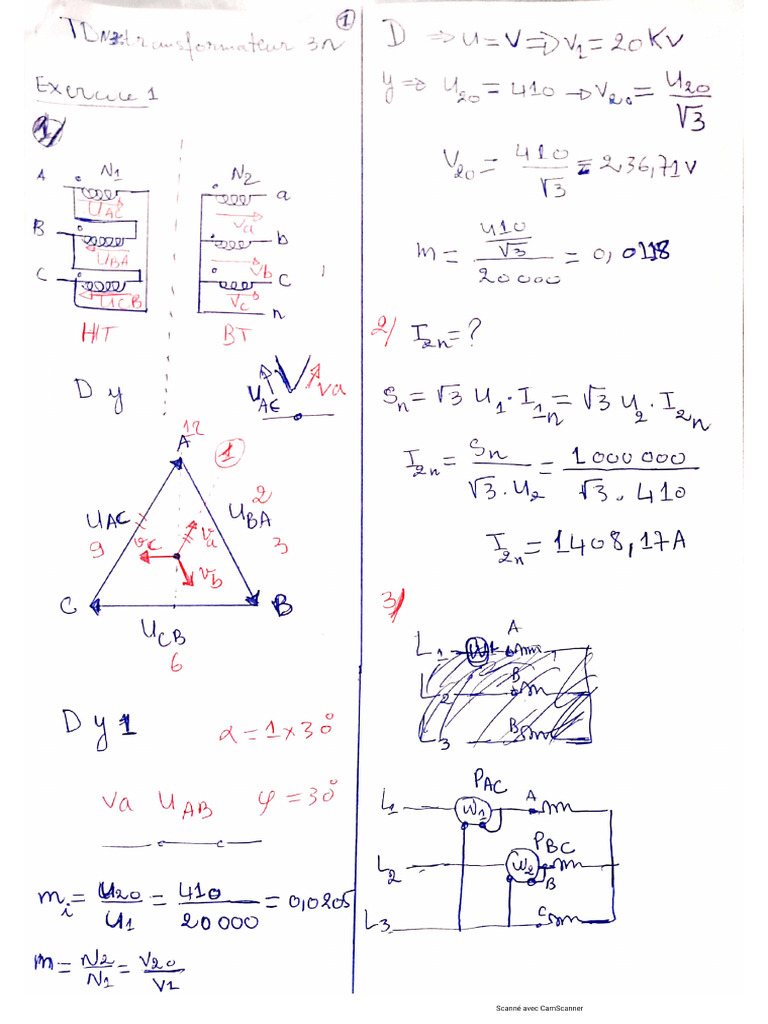 TD N°3 transformateur 3~
1
Exercice 1
1/
A N1 N2 a
UAC Va
B b
UBA Vb
C C
UCB Vc
n
HT BT
D y
UAC Va
12
A 1
UAC UBA 2
9 Vc Va 3
Vb
C B
UCB
6
D y 1 α = 1 × 30°
Va UAB φ = 30°
mi = U20/U1 = 410/20 000 = 0,0205
m = N2/N1 = V20/V1
D ⇒ U = V ⇒ V1 = 20 KV
y ⇒ U20 = 410 → V20 = U20/√3
V20 = 410/√3 = 236,71 V
m = (410/√3)/20 000 = 0,0118
2/ I2n = ?
Sn = √3 U1 · I1n = √3 U2 · I2n
I2n = Sn/(√3 · U2) = 1 000 000/(√3 · 410)
I2n = 1408,17 A
3/
L1 W1 A
L2 B
L3 B
PAC
L1 W1 A
PBC
L2 W2 B
L3 C
Scanné avec CamScanner